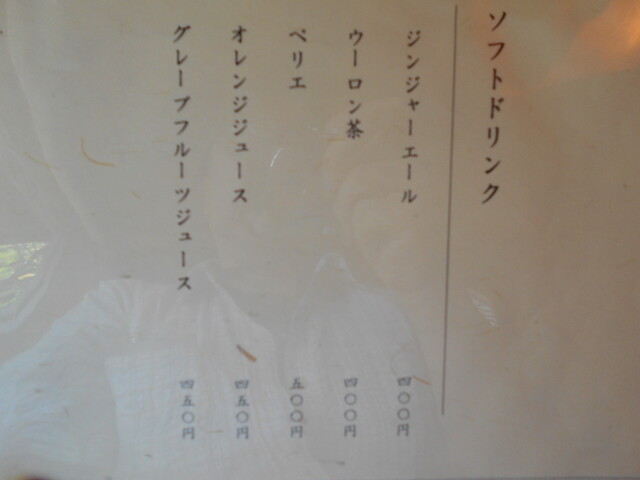 ソフトドリンク
ジンジャーエール 四〇〇円
ウーロン茶 四〇〇円
ペリエ 五〇〇円
オレンジジュース 四五〇円
グレープフルーツジュース 四五〇円